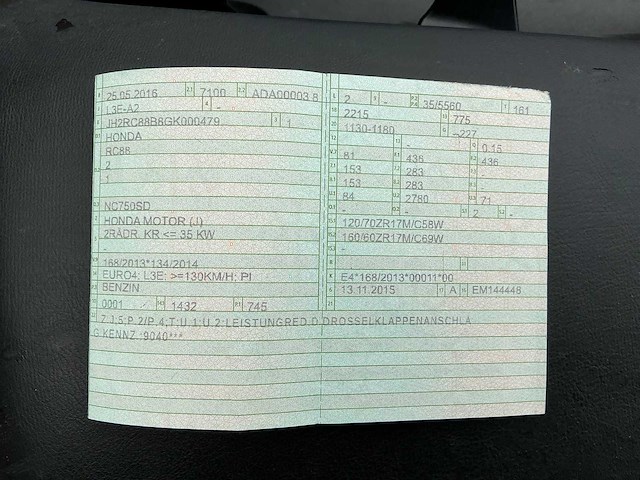 25.05.2016 7100 ADA00003 8
L3E-A2 -
JH2RC88B8GK000479 1
HONDA
RC88
2
1
NC750SD
HONDA MOTOR (J)
2RÄDR. KR <= 35 KW
-
168/2013*134/2014
EURO4; L3E: >=130KM/H; PI
BENZIN
0001 1432 745
2 - 35/5560 161
2215 775
1130-1180 -227
- 0,15
81 436 436
153 283 -
153 283 -
84 2780 71
- - 2 -
120/70ZR17M/C58W
160/60ZR17M/C69W
-
E4*168/2013*00011*00
13.11.2015 A EM144448
Z.15:P.2/P.4;T;U.1;U.2:LEISTUNGRED.D.DROSSELKLAPPENANSCHLA
G KENNZ.:9040***